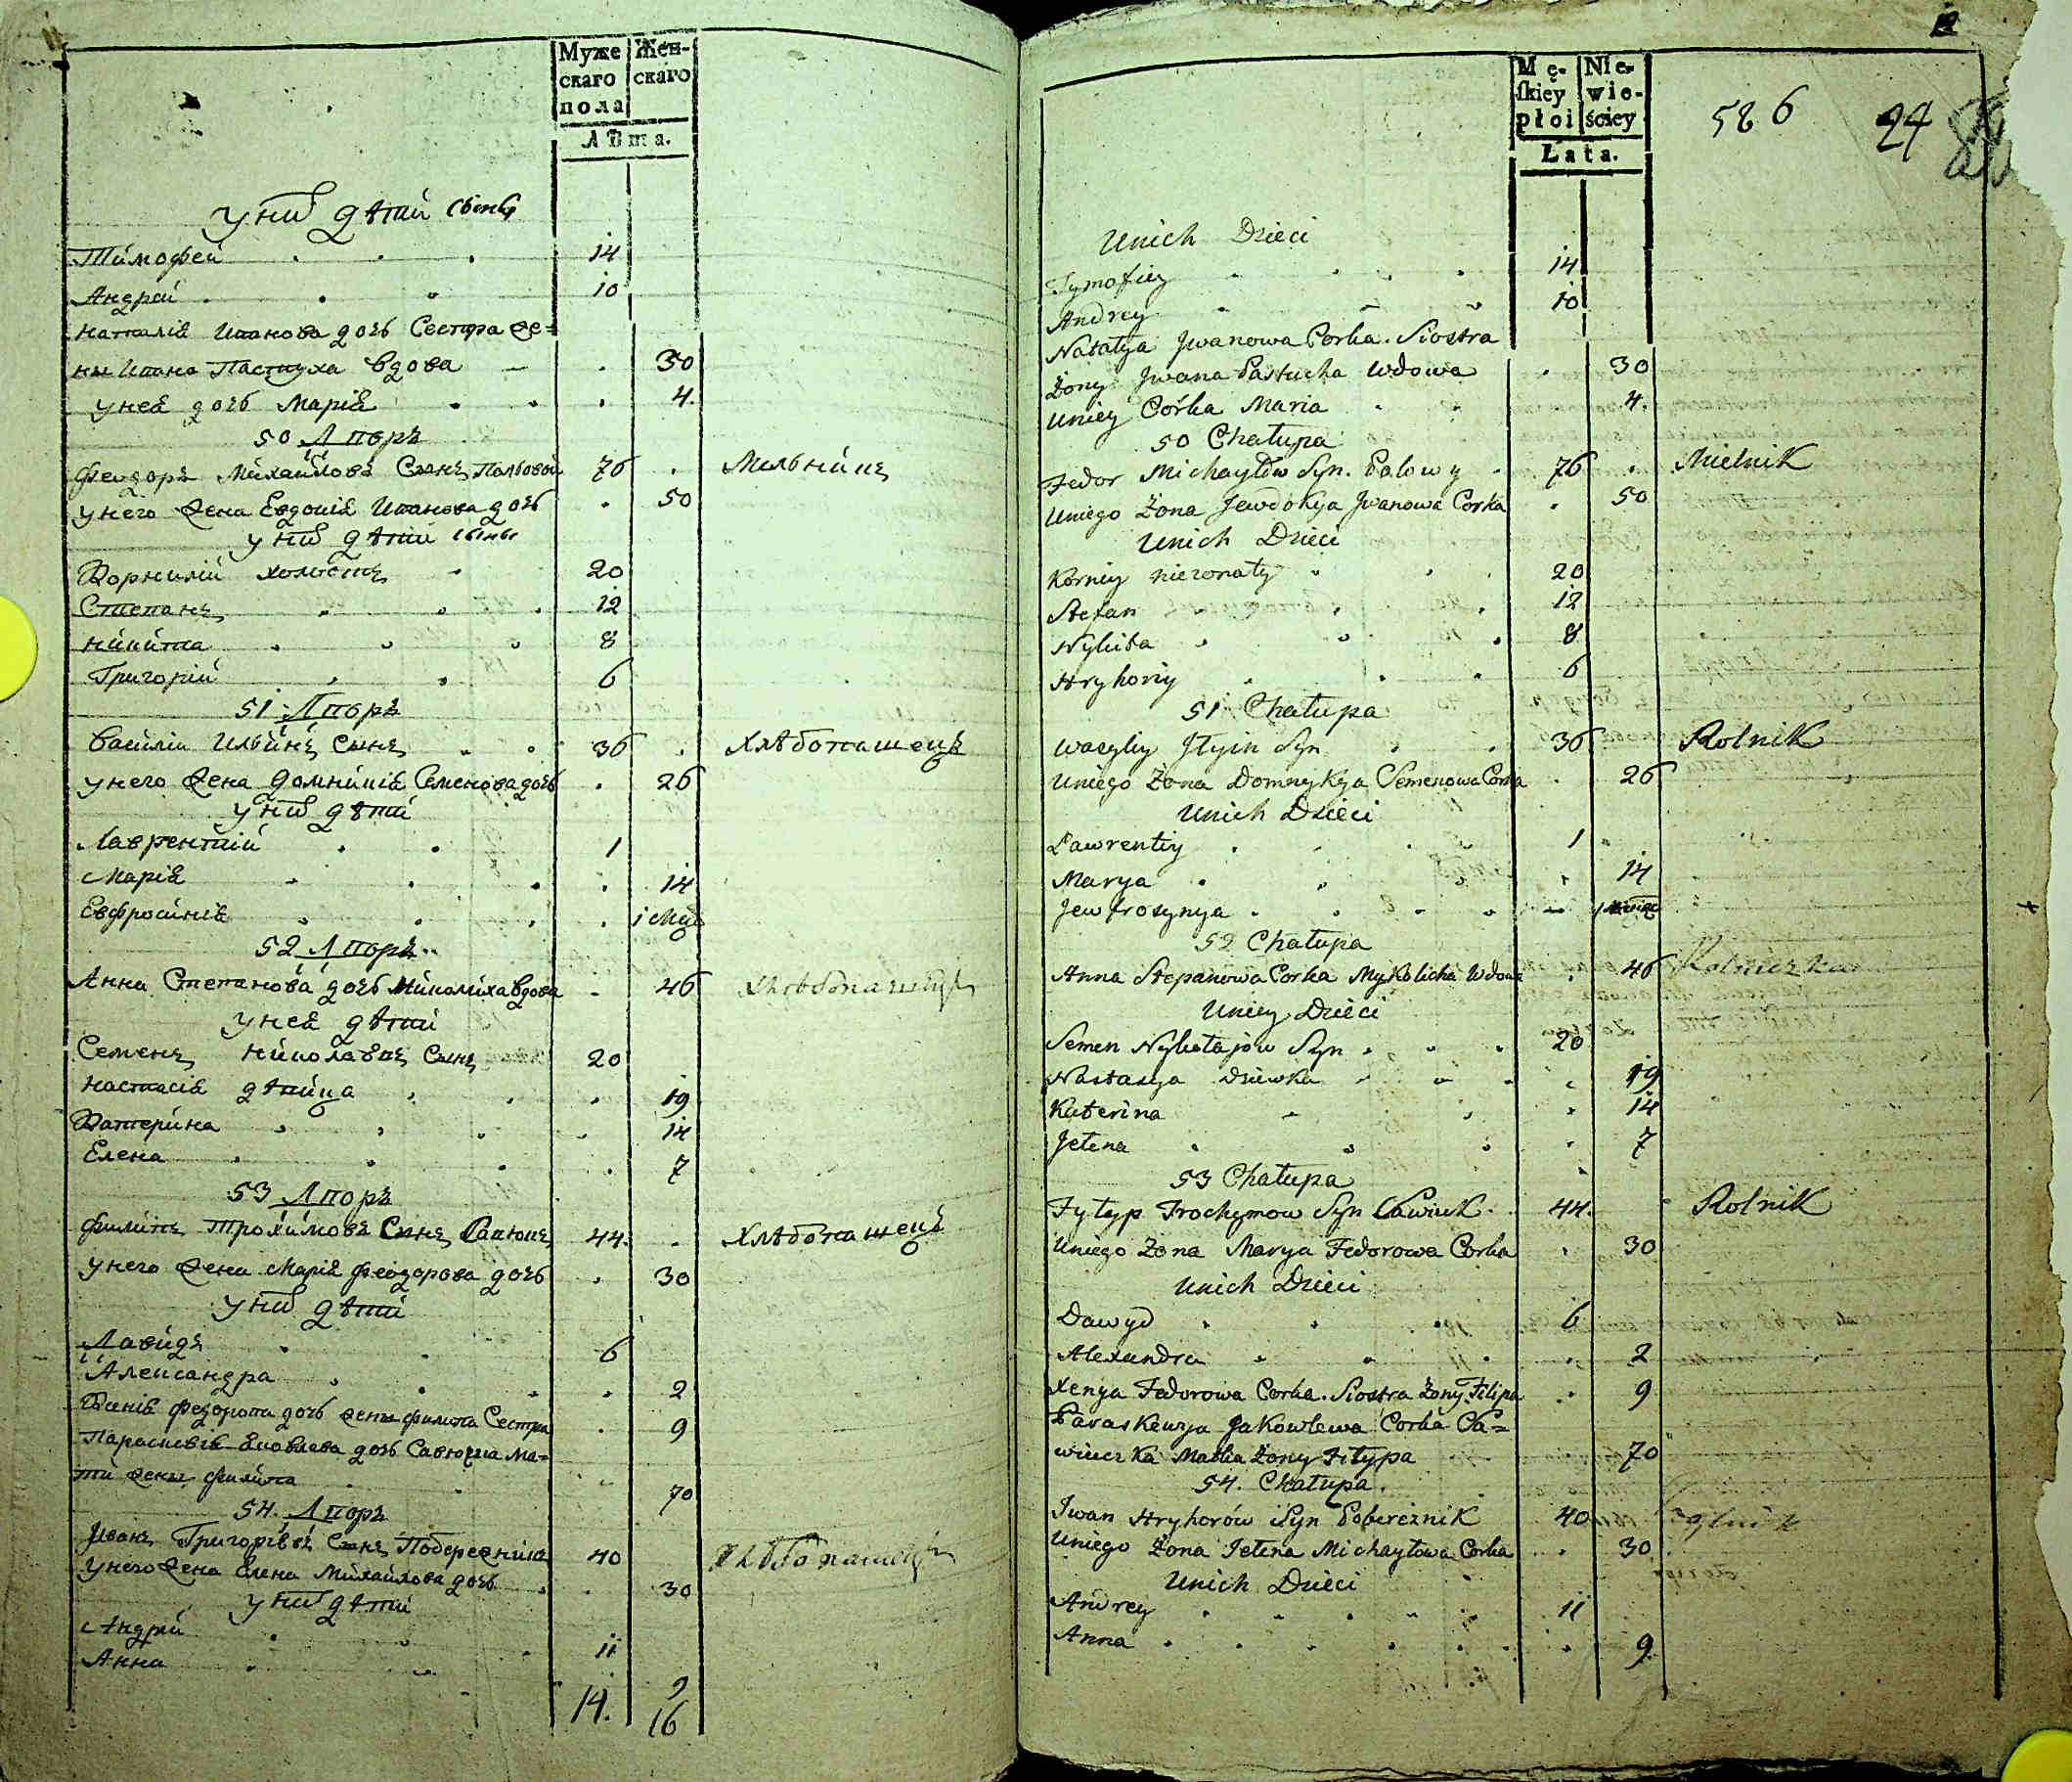 Муже
скаго
пола
Жен-
скаго
Лѣта.
у них дѣти сыны
Тимофей 14
Андрей 10
Наталiя Иванова дочь Сестра же=
ны Ивана Пастуха вдова 30
у нея дочь Марiя 4.
50 Дворъ
Феодоръ Михайловъ Сынъ Паловой 76 Мельникъ
у него жена Евдокiя Иванова дочь 50
у них дѣти сыны
Корнилiй холостъ 20
Степанъ 12
Никита 8
Григорiй 6
51 Дворъ
Василiй Ильинъ Сынъ 36 Хлѣбопашецъ
у него жена Домникiя Семенова дочь 26
у них дѣти
Лаврентiй 1
Марiя 14
Евфросинiя 1 мѣс
52 Дворъ
Анна Степанова дочь Миколиха вдова 46
у нея дѣти
Семенъ Николаевъ Сынъ 20
Настасiя дѣвица 19
Катерина 14
Елена 7
53 Дворъ
Филипъ Трохимовъ Сынъ Савюкъ 44. Хлѣбопашецъ
у него жена Марiя Феодорова дочь 30
у них дѣти
Давидъ 6
Александра 2
Ксенiя Федорова дочь жены Филипа Сестра 9
Параскевiя Яковлева дочь Савючка Ма=
ти жены Филипа 70
54. Дворъ
Иванъ Григорiевъ Сынъ Побережникъ 40 Хлѣбопашецъ
у него жена Елена Михайлова дочь 30
у них дѣти
Андрей 11
Анна 9
14. 16
Mę-
skiey
płci
Nie-
wie-
ściey
Lata.
586 24
Unich Dzieci
Tymofiey 14
Andrey 10
Natalya Jwanowa Corka. Siostra
Żony Jwana Pastucha Wdowa 30
Uniey Corka Maria 4.
50 Chałupa
Fedor Michayłow Syn. Palowy 76 Mielnik
Uniego Żona Jewdokya Jwanowa Corka 50
Unich Dzieci
Korniy niezonaty 20
Stefan 12
Nykita 8
Hryhoriy 6
51 Chałupa
Wasyliy Jlyin Syn 36 Rolnik
Uniego Żona Domnykya Semenowa Corka 26
Unich Dzieci
Ławrentiy 1
Marya 14
Jewfrosynya 1
52 Chałupa
Anna Stepanowa Corka Mykolicha Wdowa 46 Rolniczka
Uniey Dzieci
Semen Nykołajow Syn 20
Nastasya Dziewka 19
Katerina 14
Jełena 7
53 Chałupa
Fyłyp Trochymow Syn Sawiuk 44. Rolnik
Uniego Żona Marya Fedorowa Corka 30
Unich Dzieci
Dawyd 6
Alexandra 2
Xenya Fedorowa Corka. Siostra Żony Filipa 9
Paraskewya Jakowlewa Corka Sa=
wiuczka Matka Żony Fiłypa 70
54. Chałupa.
Iwan Hryhorów Syn Pobereżnik 40
Uniego Żona Jełena Michayłowa Corka 30
Unich Dzieci
Andrey 11
Anna 9